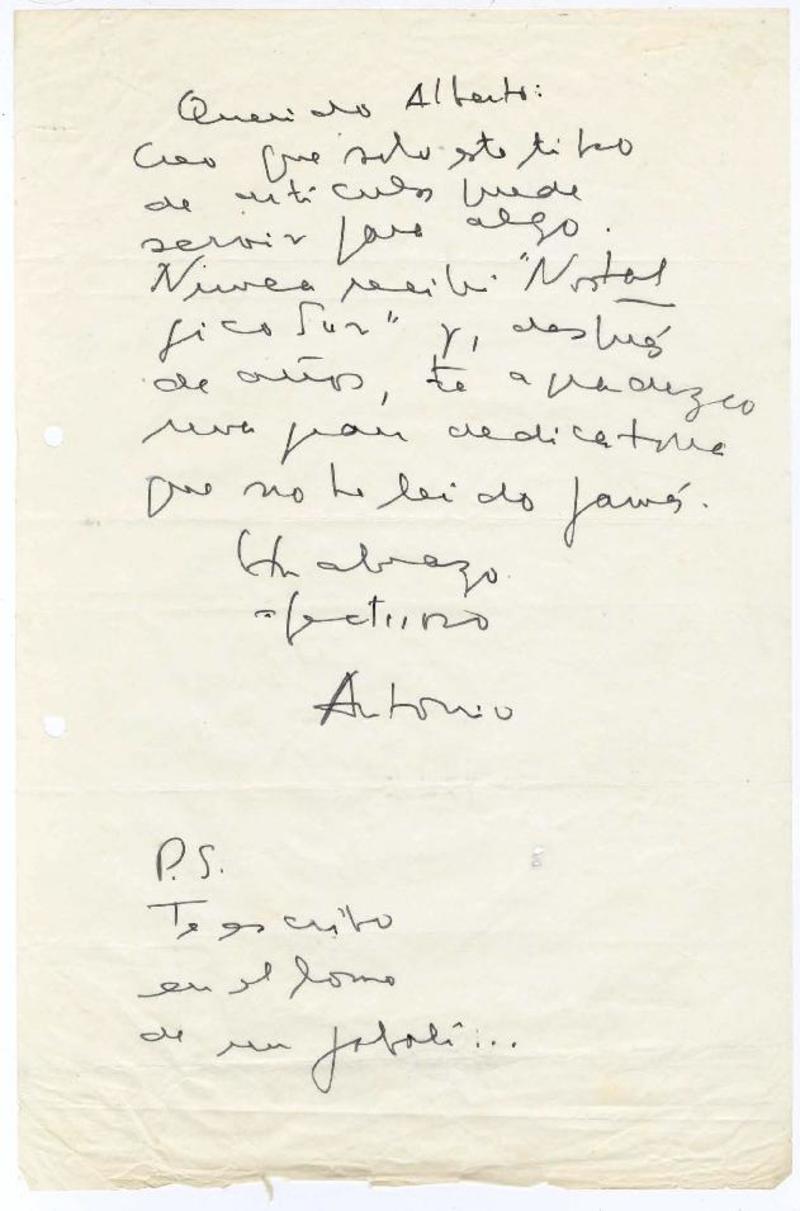 Querido Alberto:
Creo que solo este tipo
de artículos puede
servir para algo.
Nunca recibí "Nostál
gico Sur" y, después
de años, te agradezco
una gran dedicatoria
que no he leido jamás.
Un abrazo
afectuoso
Antonio
P.S.
Te escribo
en el lomo
de un jabalí...